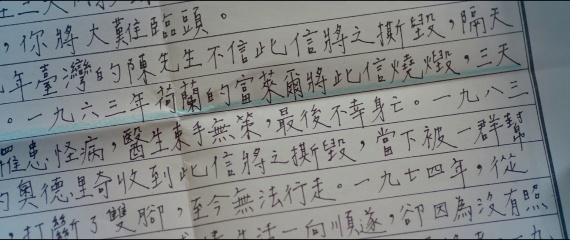 ，你將大難臨頭。
年臺灣的陳先生不信此信將之撕毀，隔天
。一九六三年荷蘭的富萊爾將此信燒燬，三天
罹患怪病，醫生束手無策，最後不幸身亡。一九八三
的奧德里奇收到此信將之撕毀，當下被一群幫
打斷了雙腳，至今無法行走。一九七四年，從
生活一向順遂，卻因為沒有照